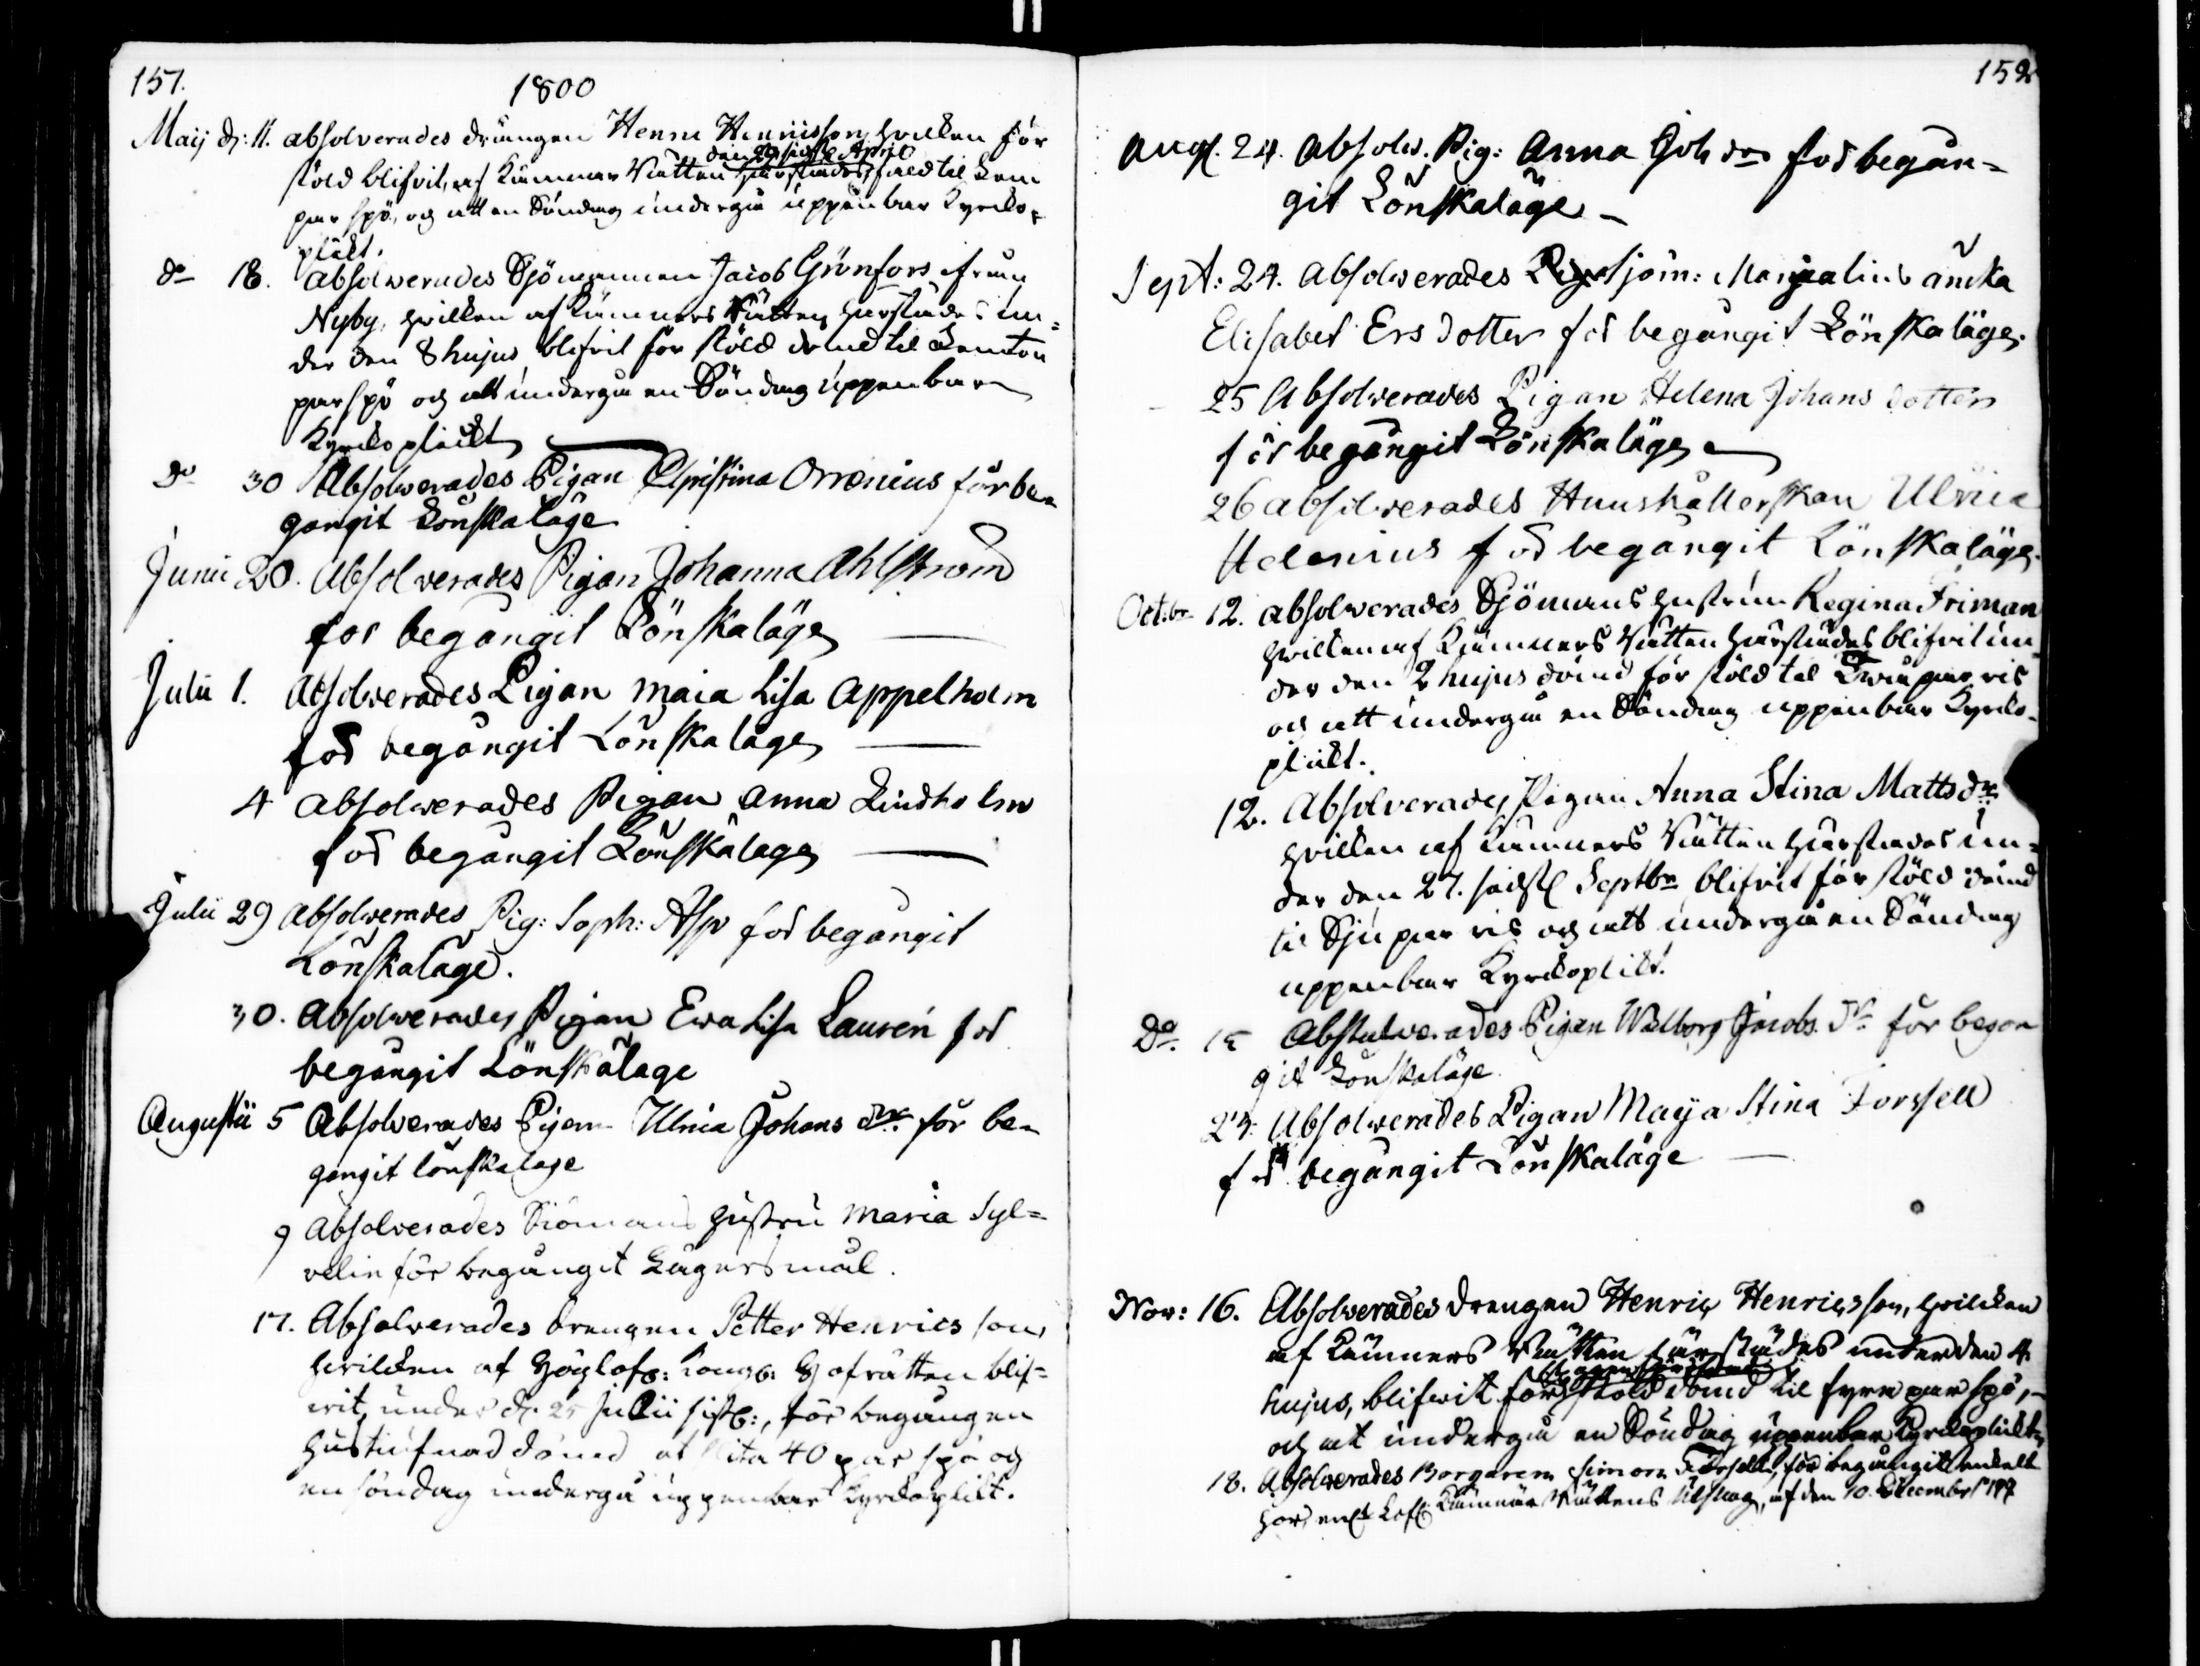 157.
1800
Maij d: 11. absolverades drängen Henric Henricsson hvilken för
stöld blifvit, af Kämners Rätten härstädes den 29 sistl. April fäld til fem
par spö, och att en Söndag undergå uppenbar Kyrko-
plickt.
do 18. absolverades Sjömannen Jacob Grönfors ifrån
Nyby, hvilken af Kämners Rätten härstädes un-
der den 8 hujus blifvit för stöld dömd til femton
par spö och att undergå en Söndag uppenbar
Kyrkoplickt
do 30 Absolverades Pigan Christina Orrænius för be-
gångit Lönskaläge
Junii 20. Absolverades Pigan Johanna Ahlström
för begångit Lönskaläge
Julii 1. Absolverades Pigan Maia Lisa Appelholm
för begångit Lönskaläge
4 Absolverades Pigan Anna Lindholm
för begångit Lönskaläge
Julii 29 Absolverades Pig: Soph: Asp för begångit
Lönskaläge.
30. Absolverades Pigan Ewa Lisa Laurén för
begångit Lönskaläge
Augustii 5 Absolverades Pigan Ulrica Johans dr för be-
gångit lönskaläge
9 Absolverades Siömans hustru Maria Syl=
velin för begångit Lägersmål.
17. Absolverades drengen Petter Henrics son,
hvilcken af Höglofl: Kongl: Hofrätten blif=
vit, under d. 25 Julii sistl:, för begången
dömd at slita 40 par spö och
en söndag undergå uppenbar Kyrkoplikt.
152
Aug. 24. Absolv. Pig: Anna Joh dr för begån=
git Lönskaläge
Sept: 24. Absolverades Sjöm: änka
Elisabet Ersdotter för begångit Lönskaläge.
25 Absolverades Pigan Helena Johans dotter
för begångit Lönskaläge
26 absolverades Hushållerskan Ulrica
för begångit Lönskaläge.
Octbr 12. absolverades Sjömans hustrun Regina Friman
hvilken af Kämners Rätten härstädes blifvit un-
der den 2 hujus dömd för stöld til par ris
och att undergå en Söndag uppenbar Kyrko-
plickt.
12. Absolverades Pigan Anna Stina Mattsdr
hvilken af Kämners Rätten härstädes un=
der den 27. sidstl Septbr blifvit för stöld dömd
til Sju par ris och att undergå en Söndag
uppenbar Kyrkoplikt.
Do. 15 Absolverades Pigan Walborg Jacobs dr för begån
git Lönskaläge
24. Absolverades Pigan Maija Stina Forssell
för begångit Lönskaläge
Nov: 16. Absolverades drengen Henric Henricsson, hvilcken
af Kämners Rätten härstädes under den 4.
hujus, blifwit för stöld dömd til fyra par spö,
och at undergå en Söndag uppenbar Kyrkoplickt,
18. Absolverades Borgaren Simon Forssell, för begångit enkelt
hor, enl Lofl. Kämnärs Rättens Utslag, af den 10. Decembr 1797